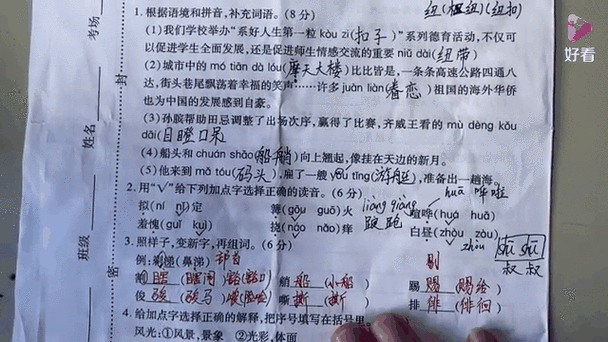 纽(枢纽)(纽扣)
好看
考场
姓名
班级
封
密
1.根据语境和拼音,补充词语。(8分)
(1)我们学校举办“系好人生第一粒 kòu zi(扣子)”系列德育活动,不仅可
以促进学生全面发展,还是促进师生情感交流的重要 niǔ dài(纽带)
(2)城市中的 mó tiān dà lóu(摩天大楼)比比皆是,一条条高速公路四通八
达,街头巷尾飘荡着幸福的笑声……许多 juàn liàn(眷恋)祖国的海外华侨
也为中国的发展感到自豪。
(3)孙膑帮助田忌调整了出场次序,赢得了比赛,齐威王看的 mù dèng kǒu
dāi(目瞪口呆)
(4)船头和 chuán shāo(船艄)向上翘起,像挂在天边的新月。
(5)他来到 mǎ tóu(码头),雇了一艘 yóu tǐng(游艇),准备出一趟海。
2.用“√”给下列加点字选择正确的读音。(6分)
huā 哗啦
拟(ní nǐ)定 篝(gōu guō)火 喧哗(huá huā)
羞愧(guǐ kuì) 挠(náo nāo)痒 白昼(zhòu zòu)
3.照样子,变新字,再组词。(6分)
例:剃(鼻涕)
艄 船(小船) 踢 赐(赐给)
俊 嘶 撕(撕) 排 徘(徘徊)
叔叔
4.给加点字选择正确的解释,把序号填写在括号里
风光:①风景,景象 ②光彩,体面